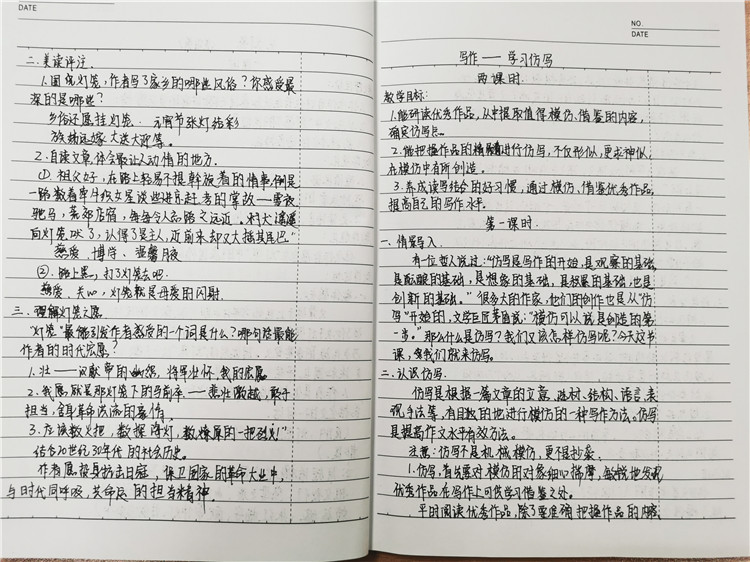 DATE
二. 美读评注.
1. 围绕灯笼, 作者写了家乡的哪些风俗? 你感受最
深的是哪些?
乡俗还愿挂灯笼. 元宵节张灯结彩
族姊远嫁 大送大迎等。
2. 自读文章体会最让人动情的地方.
① 祖父好, 在路上轻易不提斡旋着的情事, 倒是
一路数着牵牛织女星谈些进京赶考的掌故——雪夜
驰马, 荒郊店宿, 每每令人忘路之远近。村犬遥遥
向灯笼吠了, 认得了是主人, 近前来却又大摇其尾巴"
慈爱 博学、温馨月夜
②. 路上黑, 打了灯笼去吧.
慈爱. 关心, 灯笼就是母爱的闪身.
三. 理解灯笼之愿
"灯笼"最能引发作者感受的一个词是什么? 哪句话最能
作者的时代宏愿?
1. 壮——汉献帝的幽怨, 将军壮怀 我的宏愿
2. 我愿就是那灯笼下的马前卒——悲壮激越, 敢于
担当, 
3. 应该数火把, 数探海灯, 数燎原的一把烈火!"
结合20世纪30年代的社会历史。
作者愿投身抗击日寇, 保卫国家的革命大业中,
与时代同呼吸, 共命运 的担当精神.
NO.
DATE
写作——学习仿写
两课时.
教学目标:
1. 能研读优秀作品, 从中提取值得模仿、借鉴的内容,
确定仿写点。
2. 能把握作品的精髓进行仿写, 不仅形似, 更求神似,
在模仿中有所创造。
3. 养成读写结合的好习惯, 通过模仿、借鉴优秀作品,
提高自己的写作水平.
第一课时.
一. 情景导入.
有一位哲人说过: "仿写是写作的开始, 是观察的基础,
是酝酿的基础, 是想象的基础, 是积累的基础, 也是
创新的基础。" 很多大的作家, 他们的创作也是从"仿
写"开始的, 文学巨匠茅盾说: "模仿可以说是创造的第
一步。" 那么什么是仿写? 我们又该怎样仿写呢? 今天这节
课, 我们就来仿写.
二. 认识仿写.
仿写是根据一篇文章的立意、选材、结构、语言、表
现手法等, 有目的地进行模仿的一种写作方法。仿写
是提高作文水平有效方法.
注意: 仿写不是机械模仿, 更不是抄袭.
1. 仿写, 首先要对模仿的对象细心揣摩, 敏锐地发现
优秀作品在写作上可供学习借鉴之处。
平时阅读优秀作品, 除了要准确把握作品的内容,